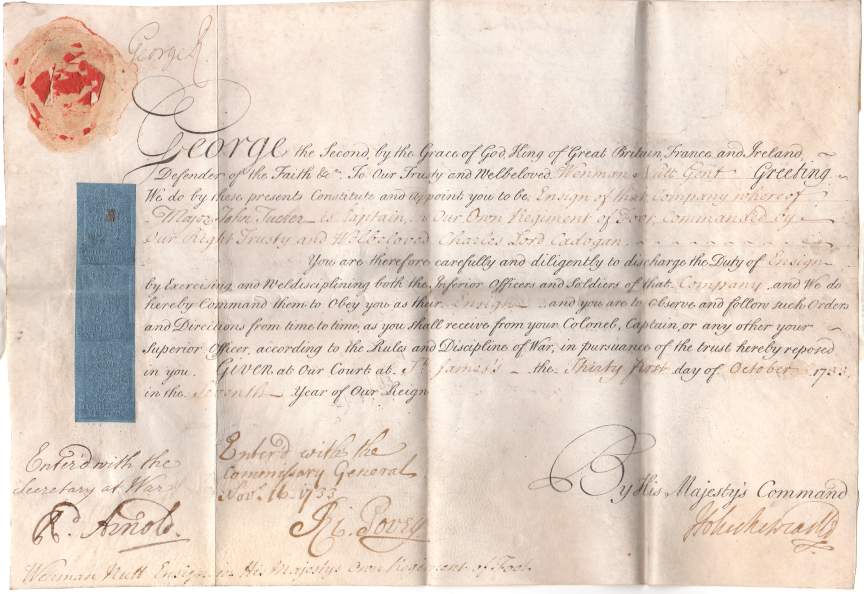 George R
George the Second, by the Grace of God King of Great Britain, France, and Ireland,
Defender of the Faith &c. To Our Trusty and Welbeloved Wenman Nutt Gent Greeting
We do by these presents Constitute and appoint you to be Ensign of that Company whereof
Major John Tucker is Captain, in Our Own Regiment of Foot Commanded by
Our Right Trusty and Welbeloved Charles Lord Cadogan
You are therefore carefully and diligently to discharge the Duty of Ensign
by Exercising and Weldisciplining both the Inferior Officers and Soldiers of that Company and We do
hereby Command them to Obey you as their Ensign and you are to Observe and follow such Orders
and Directions from time to time, as you shall receive from your Colonel, Captain, or any other your
Superior Officer, according to the Rules and Discipline of War, in pursuance of the trust hereby reposed
in you. Given at Our Court at St. James's the Thirty first day of October 1733
in the Seventh Year of Our Reign
Enter'd with the
Secretary at War
Rd. Arnold
Enter'd with the
Commissary General
Nov. 16. 1733
Ri Povey
By His Majesty's Command
Wenman Nutt Ensign in His Majestys Own Regiment of Foot